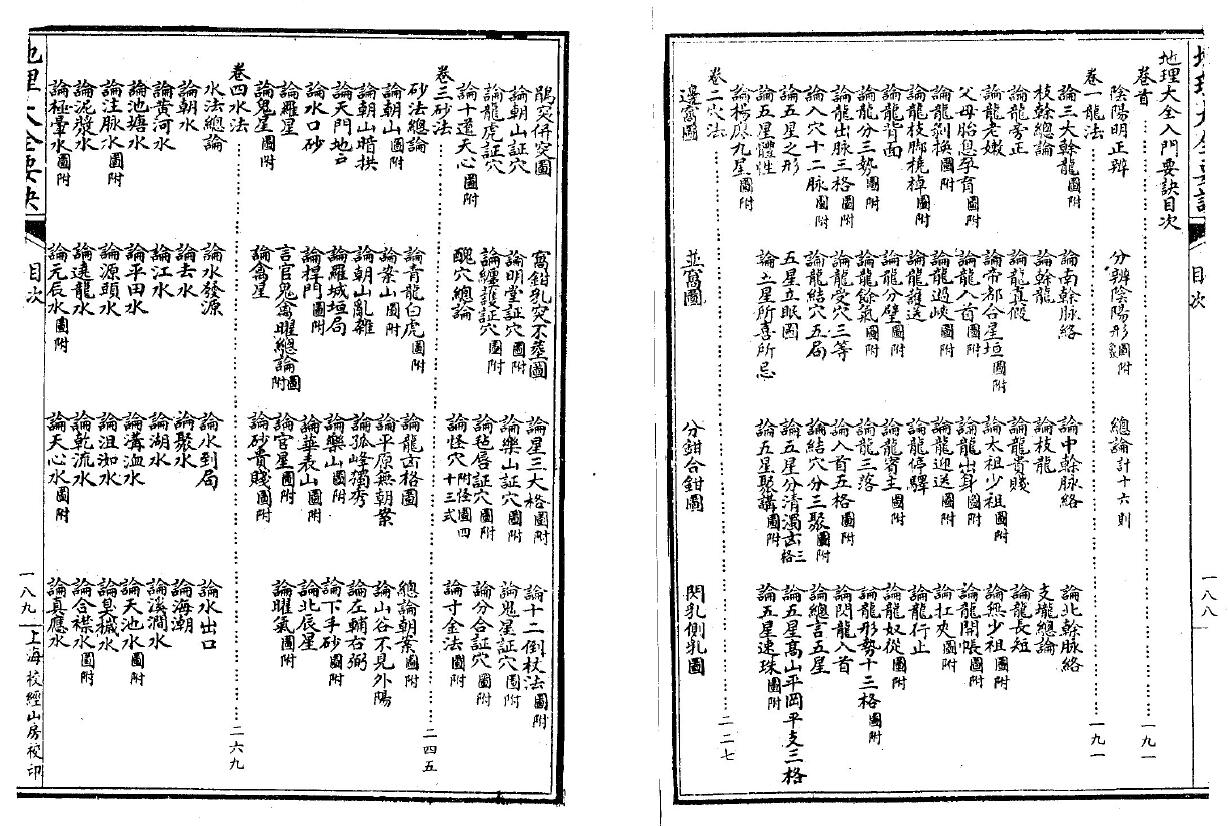 地理大全入門要訣目次
卷首 一九一
陰陽明正辨 分辨陰陽形圖附 總論計十六則
卷一龍法 一九一
論三大幹龍圖附 論南幹脉絡 論中幹脉絡 論北幹脉絡
枝幹總論 論幹龍 論枝龍 支壠總論
論龍旁正 論龍真假 論龍貴賤 論龍長短
論龍老嫩 論帝都合星垣圖附 論太祖少祖圖附 論無少祖圖附
父母胎息孕育圖附 論龍入首圖附 論龍出身圖附 論龍開帳圖附
論龍剝換圖附 論龍過峽圖附 論龍迎送圖附 論扛夾圖附
論龍枝脚橈棹圖附 論龍護送 論龍停驛 論龍行止
論龍背面 論龍分劈圖附 論龍賓主圖附 論龍奴從圖附
論龍分三勢圖附 論龍餘氣圖附 論龍三落 論龍形勢十三格圖附
論龍出脉三格圖附 論龍受穴三等 論入首五格圖附 論閃龍入首
論八穴十二脉圖附 論龍結穴五局 論結穴分三聚圖附 論總言五星
論五星之形 五星立眠圖 論五星分清濁凶三格 論五星高山平岡平支三格
論五星體性 論五星所喜所忌 論五星聚講圖附 論五星連珠圖附
論楊廖九星圖附
卷二穴法 二二七
邊窩圖 並窩圖 分鉗合鉗圖 閃乳側乳圖
目次 一八八
併突圖 窩鉗乳突不葬圖 論星三大格圖附 論十二倒杖法圖附
論朝山証穴 論明堂証穴圖附 論樂山証穴圖附 論鬼星証穴圖附
論龍虎証穴 論纏護証穴圖附 論毡唇証穴圖附 論分合証穴圖附
論十道天心圖附 醜穴總論 論怪穴附怪圖四十三式 論寸金法圖附
卷三砂法 二四五
砂法總論 論青龍白虎圖附 論龍虎凶格圖 總論朝案圖附
論朝山圖附 論案山圖附 論平原無朝案 論山谷不見外陽
論朝山暗拱 論朝山亂雜 論孤峰獨秀 論左輔右弼
論天門地户 論羅城垣局 論樂山圖附 論下手砂圖附
論水口砂 論捍門圖附 論華表山圖附 論北辰星
論羅星 言官鬼禽曜總論圖附 論官星圖附 論曜氣圖附
論鬼星圖附 論禽星 論砂貴賤圖附
卷四水法 二六九
水法總論 論水發源 論水到局 論水出口
論朝水 論去水 論聚水 論海潮
論黃河水 論江水 論湖水 論溪澗水
論池塘水 論平田水 論溝洫水 論天池水圖附
論注脉水圖附 論源頭水 論沮洳水 論臭穢水
論泥漿水 論遠龍水 論乾流水 論合襟水圖附
論極暈水圖附 論元辰水圖附 論天心水圖附 論真應水
地理大全要訣 目次 一八九 上海校經山房校印